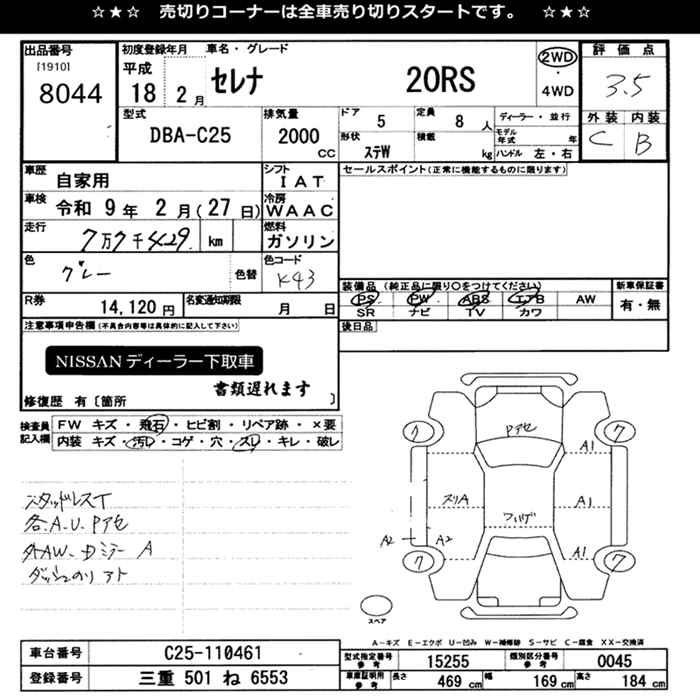 ☆★☆ 売切りコーナーは全車売り切りスタートです。 ☆★☆
出品番号
[1910]
8044
初度登録年月
平成
18 2月
車名・グレード
セレナ 20RS
2WD
・
4WD
評価点
3.5
外装 内装
C B
型式
DBA-C25
排気量
2000
CC
ドア
5
定員
8人
形状
ステW
積載
kg
ディーラー・並行
モデル年式 年
ハンドル 左・右
車歴
自家用
シフト
IAT
車検
令和 9年 2月(27日)
冷房
WAAC
走行
7万7千429 km
燃料
ガソリン
色
グレー
色替
色コード
K43
R券
14,120円
名変通知期限
月 日
セールスポイント(正常に機能するものに限ります)
装備品(純正品に限り〇をつけてください)
PS PW ABS エアB AW
SR ナビ TV カワ
新車保証書
有・無
後日品
注意事項申告欄(不具合内容等は具体的に記入して下さい)
NISSANディーラー下取車
書類遅れます
修復歴 有〔箇所 〕
検査員
記入欄
FW キズ・飛石・ヒビ割・リペア跡・×要
内装 キズ・汚レ・コゲ・穴・スレ・キレ・破レ
スタッドレスT
各.A.U.Pアセ
外AW-Dミラー A
ダッシュのリアト
Pアセ
ワ
ワ
A1
スリA
A1
A2
A2
ワ
A1
ワ
スペア
A-キズ E-エクボ U-凹み W-補修跡 S-サビ C-腐食 XX-交換済
車台番号
C25-110461
登録番号
三重 501 ね 6553
型式指定番号
参考
15255
類別区分番号
参考
0045
車庫証明用
参考
長さ
469 cm
幅
169 cm
高さ
184 cm